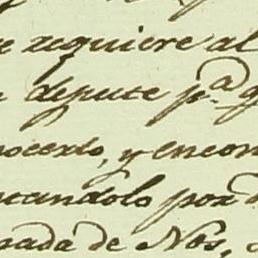 requiere al
depute p.ª q
nocerlo, y encon
tandolo por
rada de Nos,